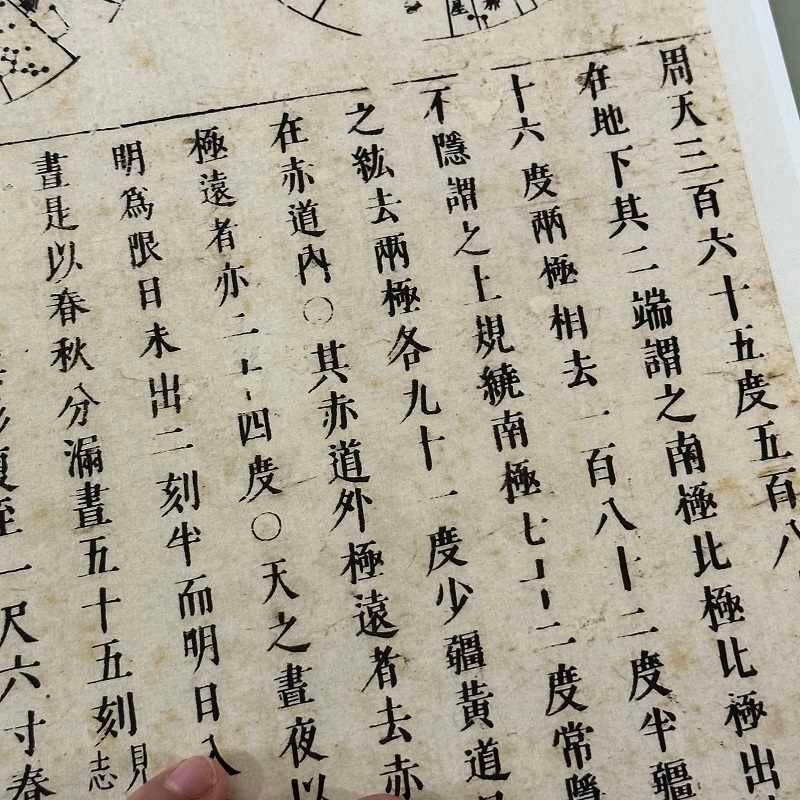 周天三百六十五度五百八
在地下其二端謂之南極北極北極出
十六度兩極相去一百八十二度半彊
不隱謂之上規繞南極七十二度常隱
之紘去兩極各九十一度少彊黃道
在赤道內○其赤道外極遠者去赤
極遠者亦二十四度○天之晝夜以
明爲限日未出二刻半而明日入
晝是以春秋分漏晝五十五刻
見
志
至一尺六寸春
星